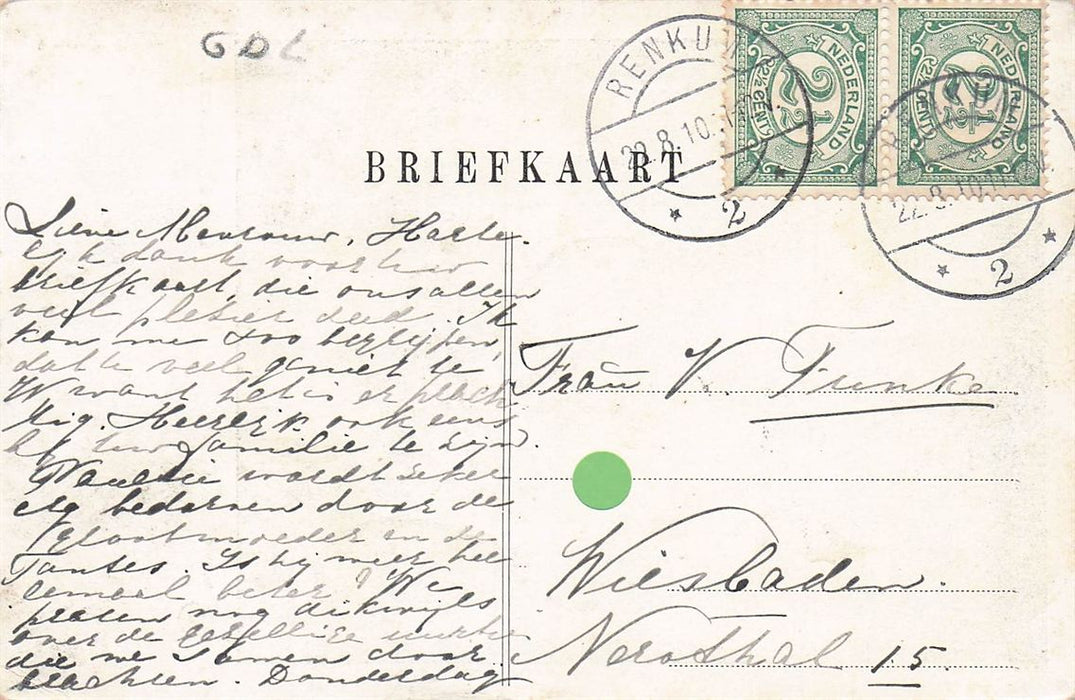 GDL
RENKUM
22.8.10.
2
NEDERLAND
2½
2½ CENT
RENKUM
22.8.10.
2
NEDERLAND
2½
2½ CENT
BRIEFKAART
Lieve Mevrouw, Harte-
lijk dank voor Uw
briefkaart, die ons allen
veel plesier deed. Ik
kan me zoo begrijpen,
dat U veel geniet te
W want het is er pracht
tig. Heerlijk ook eens
bij Uw familie te zijn.
wordt zeker
erg bedorven door de
Grootmoeder en de
Tantes. Is hij weer hee
lemaal beter? We
praten nog dikwijls
over de gezellige uurtjes
die we samen door
brachten. Donderdag
Frau V. Funke
Wiesbaden.
Nerothal 15.